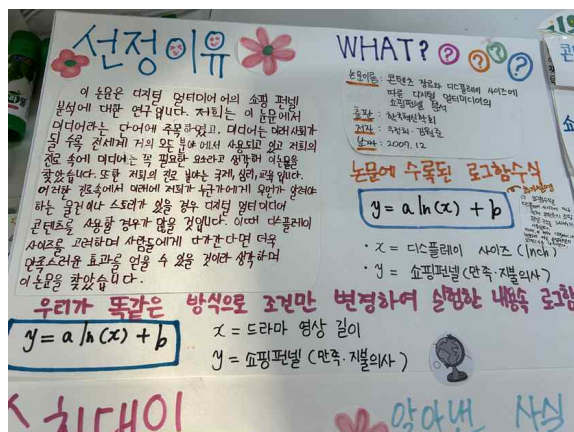 선정이유
이 논문은 디지털 멀티미디어의 쇼핑 펀넬
분석에 대한 연구입니다. 저희는 이 논문에서
미디어라는 단어에 주목하였고, 미디어는 미래사회가
될 수록 전세계 거의 모든 분야에서 사용되고 있고 저희의
진로 속에 미디어는 꼭 필요한 요소라고 생각하여 이 논문을
찾았습니다. 또한 저희의 진로 분야는 국제, 심리, 교육입니다.
이러한 진로속에서 미래에 저희가 누군가에게 무언가 알려야
하는 물건이나 스토리가 있을 경우 디지털 멀티미디어
콘텐츠를 사용할 경우가 많을 것입니다. 이때 디스플레이
사이즈를 고려하여 사람들에게 다가간다면 더욱
만족스러운 효과를 얻을 수 있을 것이라 생각하여
이 논문을 찾았습니다.
WHAT? ? ? ? ?
논문이름: 콘텐츠 장르와 디스플레이 사이즈에
따른 디지털 멀티미디어의
쇼핑펀넬 분석
출판: 한국책학회
저자: 우정화, 김원준
날짜: 2007.12
논문에 수록된 로그함수식
y = a ln(x) + b
• x = 디스플레이 사이즈 (inch)
• y = 쇼핑펀넬 (만족·지불의사)
우리가 똑같은 방식으로 조건만 변경하여 실험한 내용속 로그함
y = a ln(x) + b
x = 드라마 영상 길이
y = 쇼핑펀넬 (만족·지불의사)
알아낸 사실